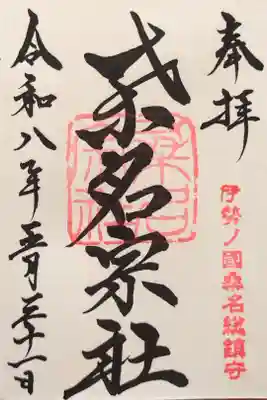 奉拝
伊勢ノ國桑名総鎮守
桑名宗社
令和八年五月三十一日